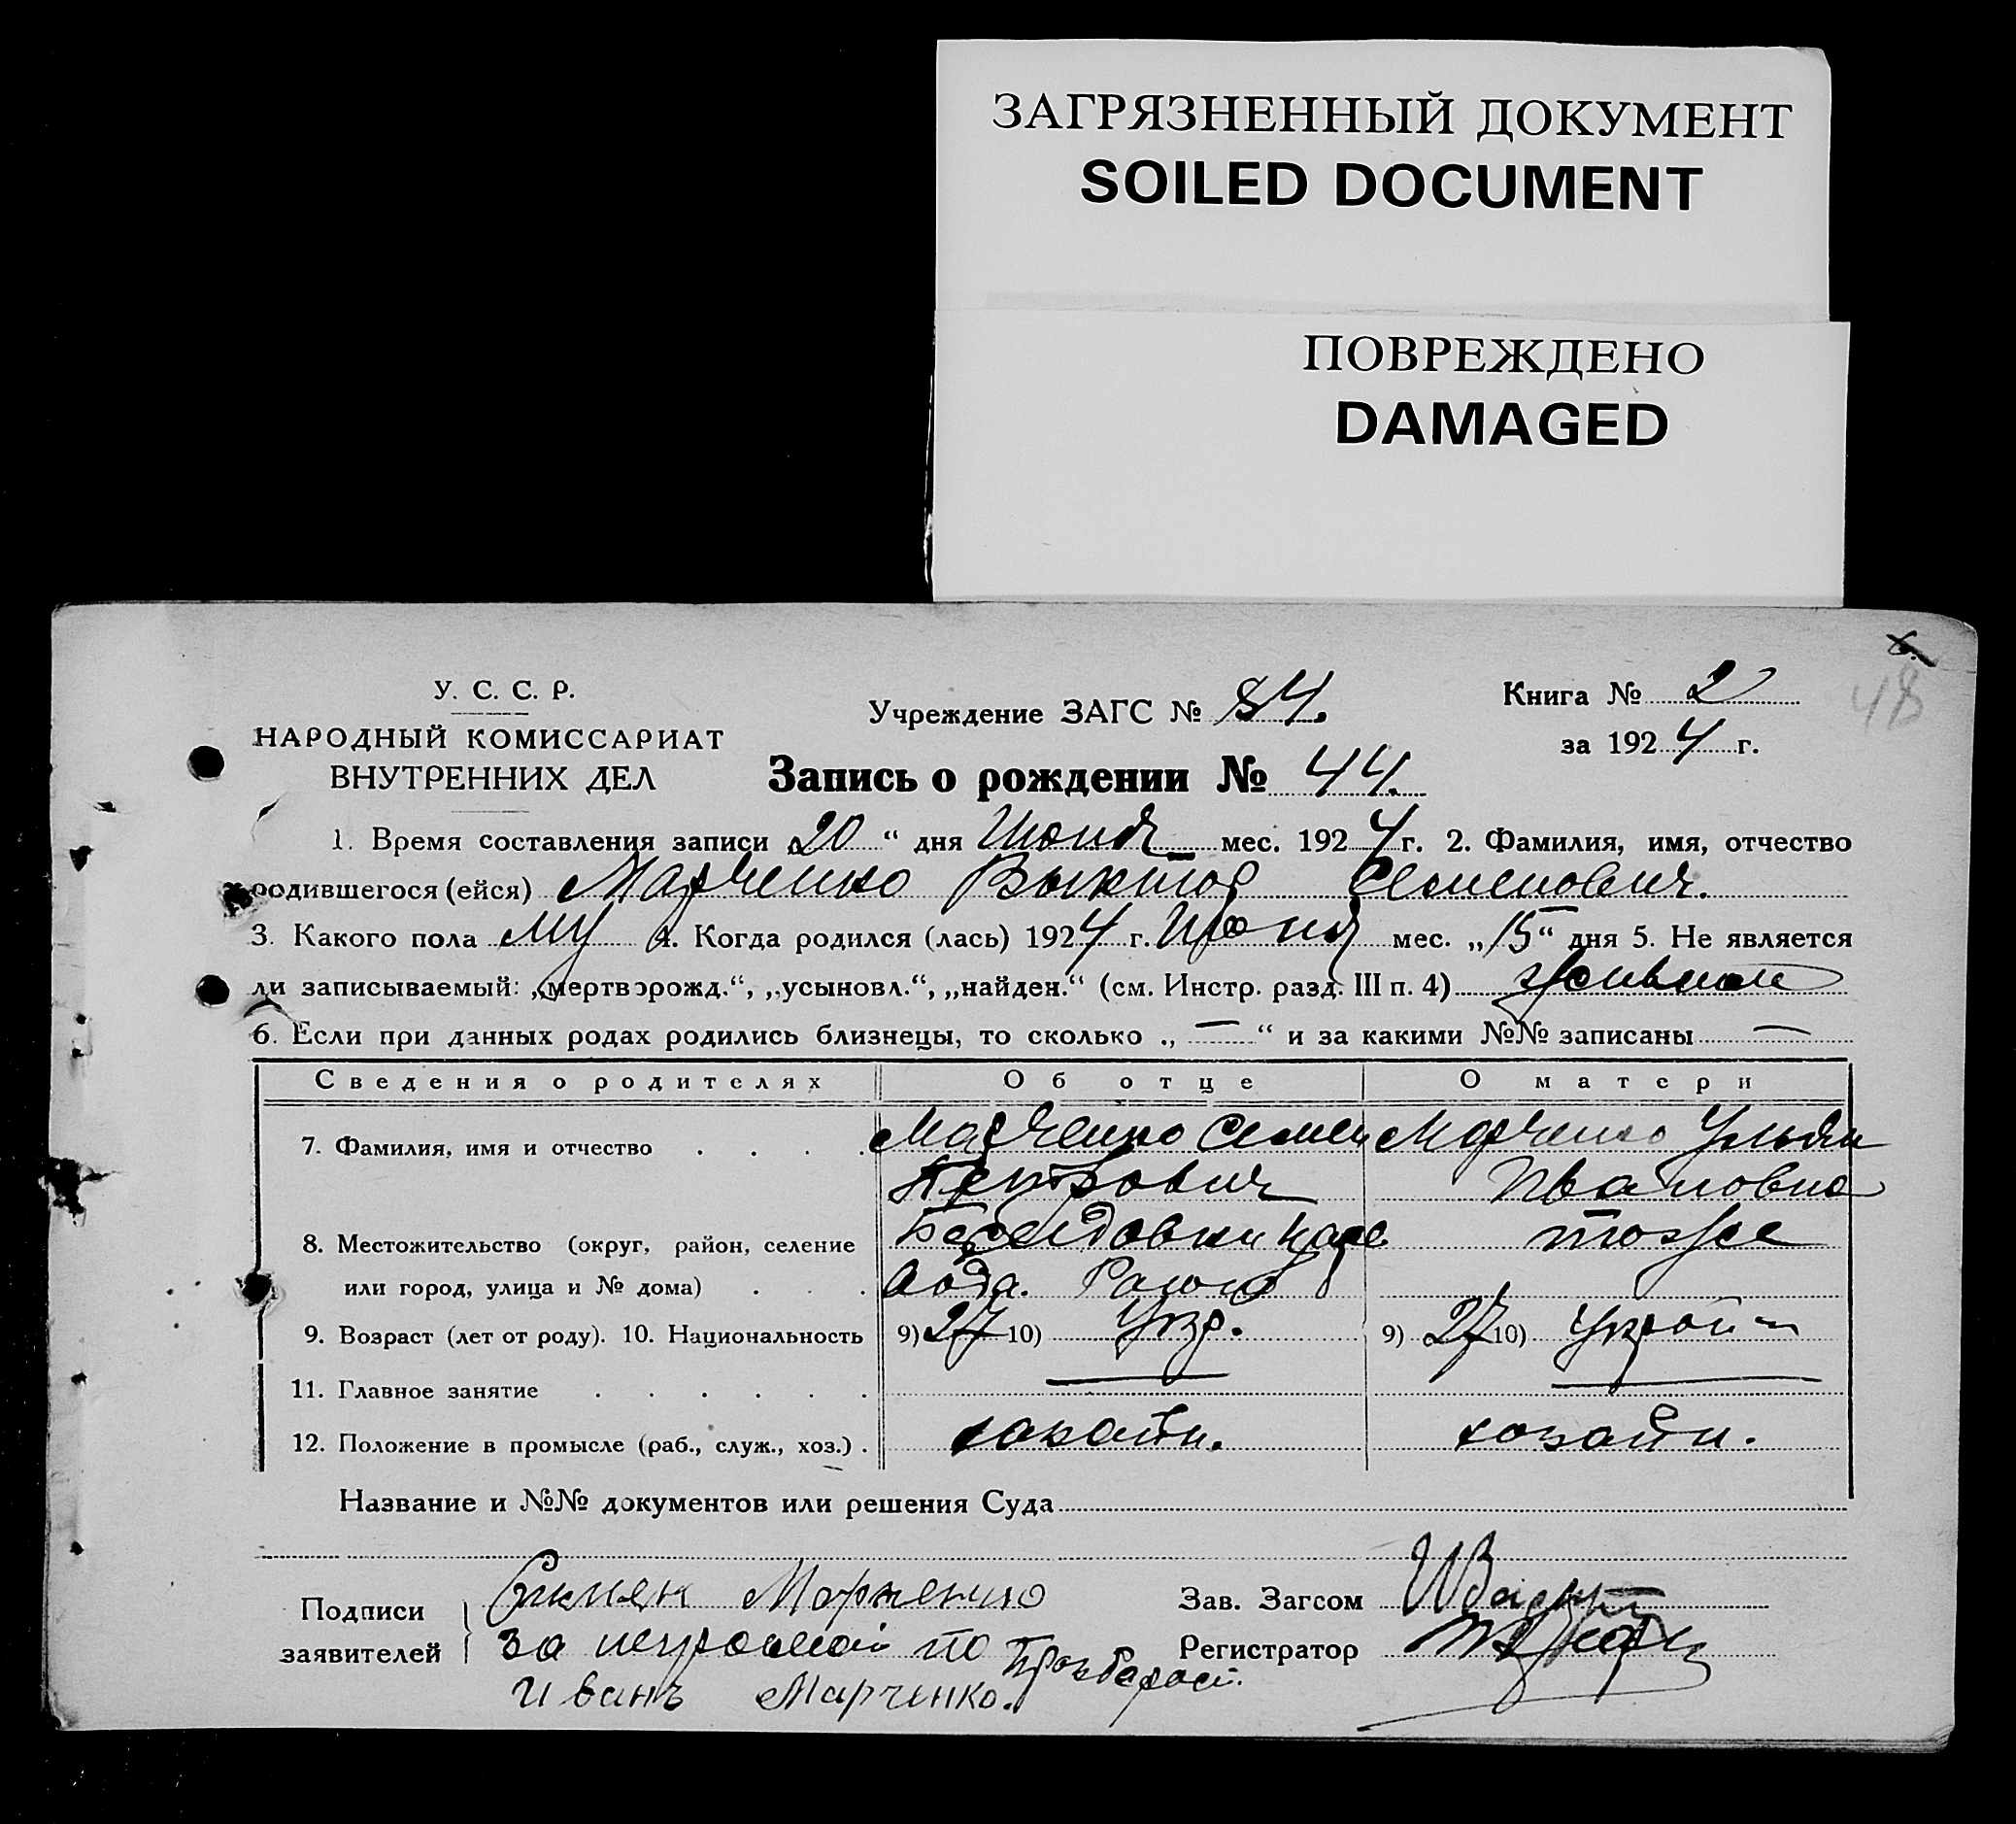 ЗАГРЯЗНЕННЫЙ ДОКУМЕНТ
SOILED DOCUMENT
ПОВРЕЖДЕНО
DAMAGED
48
У. С. С. Р.
НАРОДНЫЙ КОМИССАРИАТ
ВНУТРЕННИХ ДЕЛ
Учреждение ЗАГС № 84.
Книга № 2
за 1924 г.
Запись о рождении № 44.
1. Время составления записи 20 “ дня Июня мес. 1924 г. 2. Фамилия, имя, отчество
родившегося (ейся) Марченко Виктор Семенович.
3. Какого пола му 4. Когда родился (лась) 1924 г. Июня мес. „15“ дня 5. Не является
ли записываемый: „мертворожд.“, „усыновл.“, „найден.“ (см. Инстр. разд. III п. 4) живым
6. Если при данных родах родились близнецы, то сколько „ — “ и за какими №№ записаны —
Сведения о родителях Об отце О матери
7. Фамилия, имя и отчество . . . . Марченко Семен Марченко Ульян
Петрович Ивановна
8. Местожительство (округ, район, селение тоже
или город, улица и № дома) . . .
9. Возраст (лет от роду). 10. Национальность 9) 27 10) Укр. 9) 27 10) Украин
11. Главное занятие . . . . . .
12. Положение в промысле (раб., служ., хоз.) . хазайн. хозайн.
Название и №№ документов или решения Суда
Подписи
заявителей
Марченко
за неграмот по
Иванъ Марченко.
Зав. Загсом
Регистратор